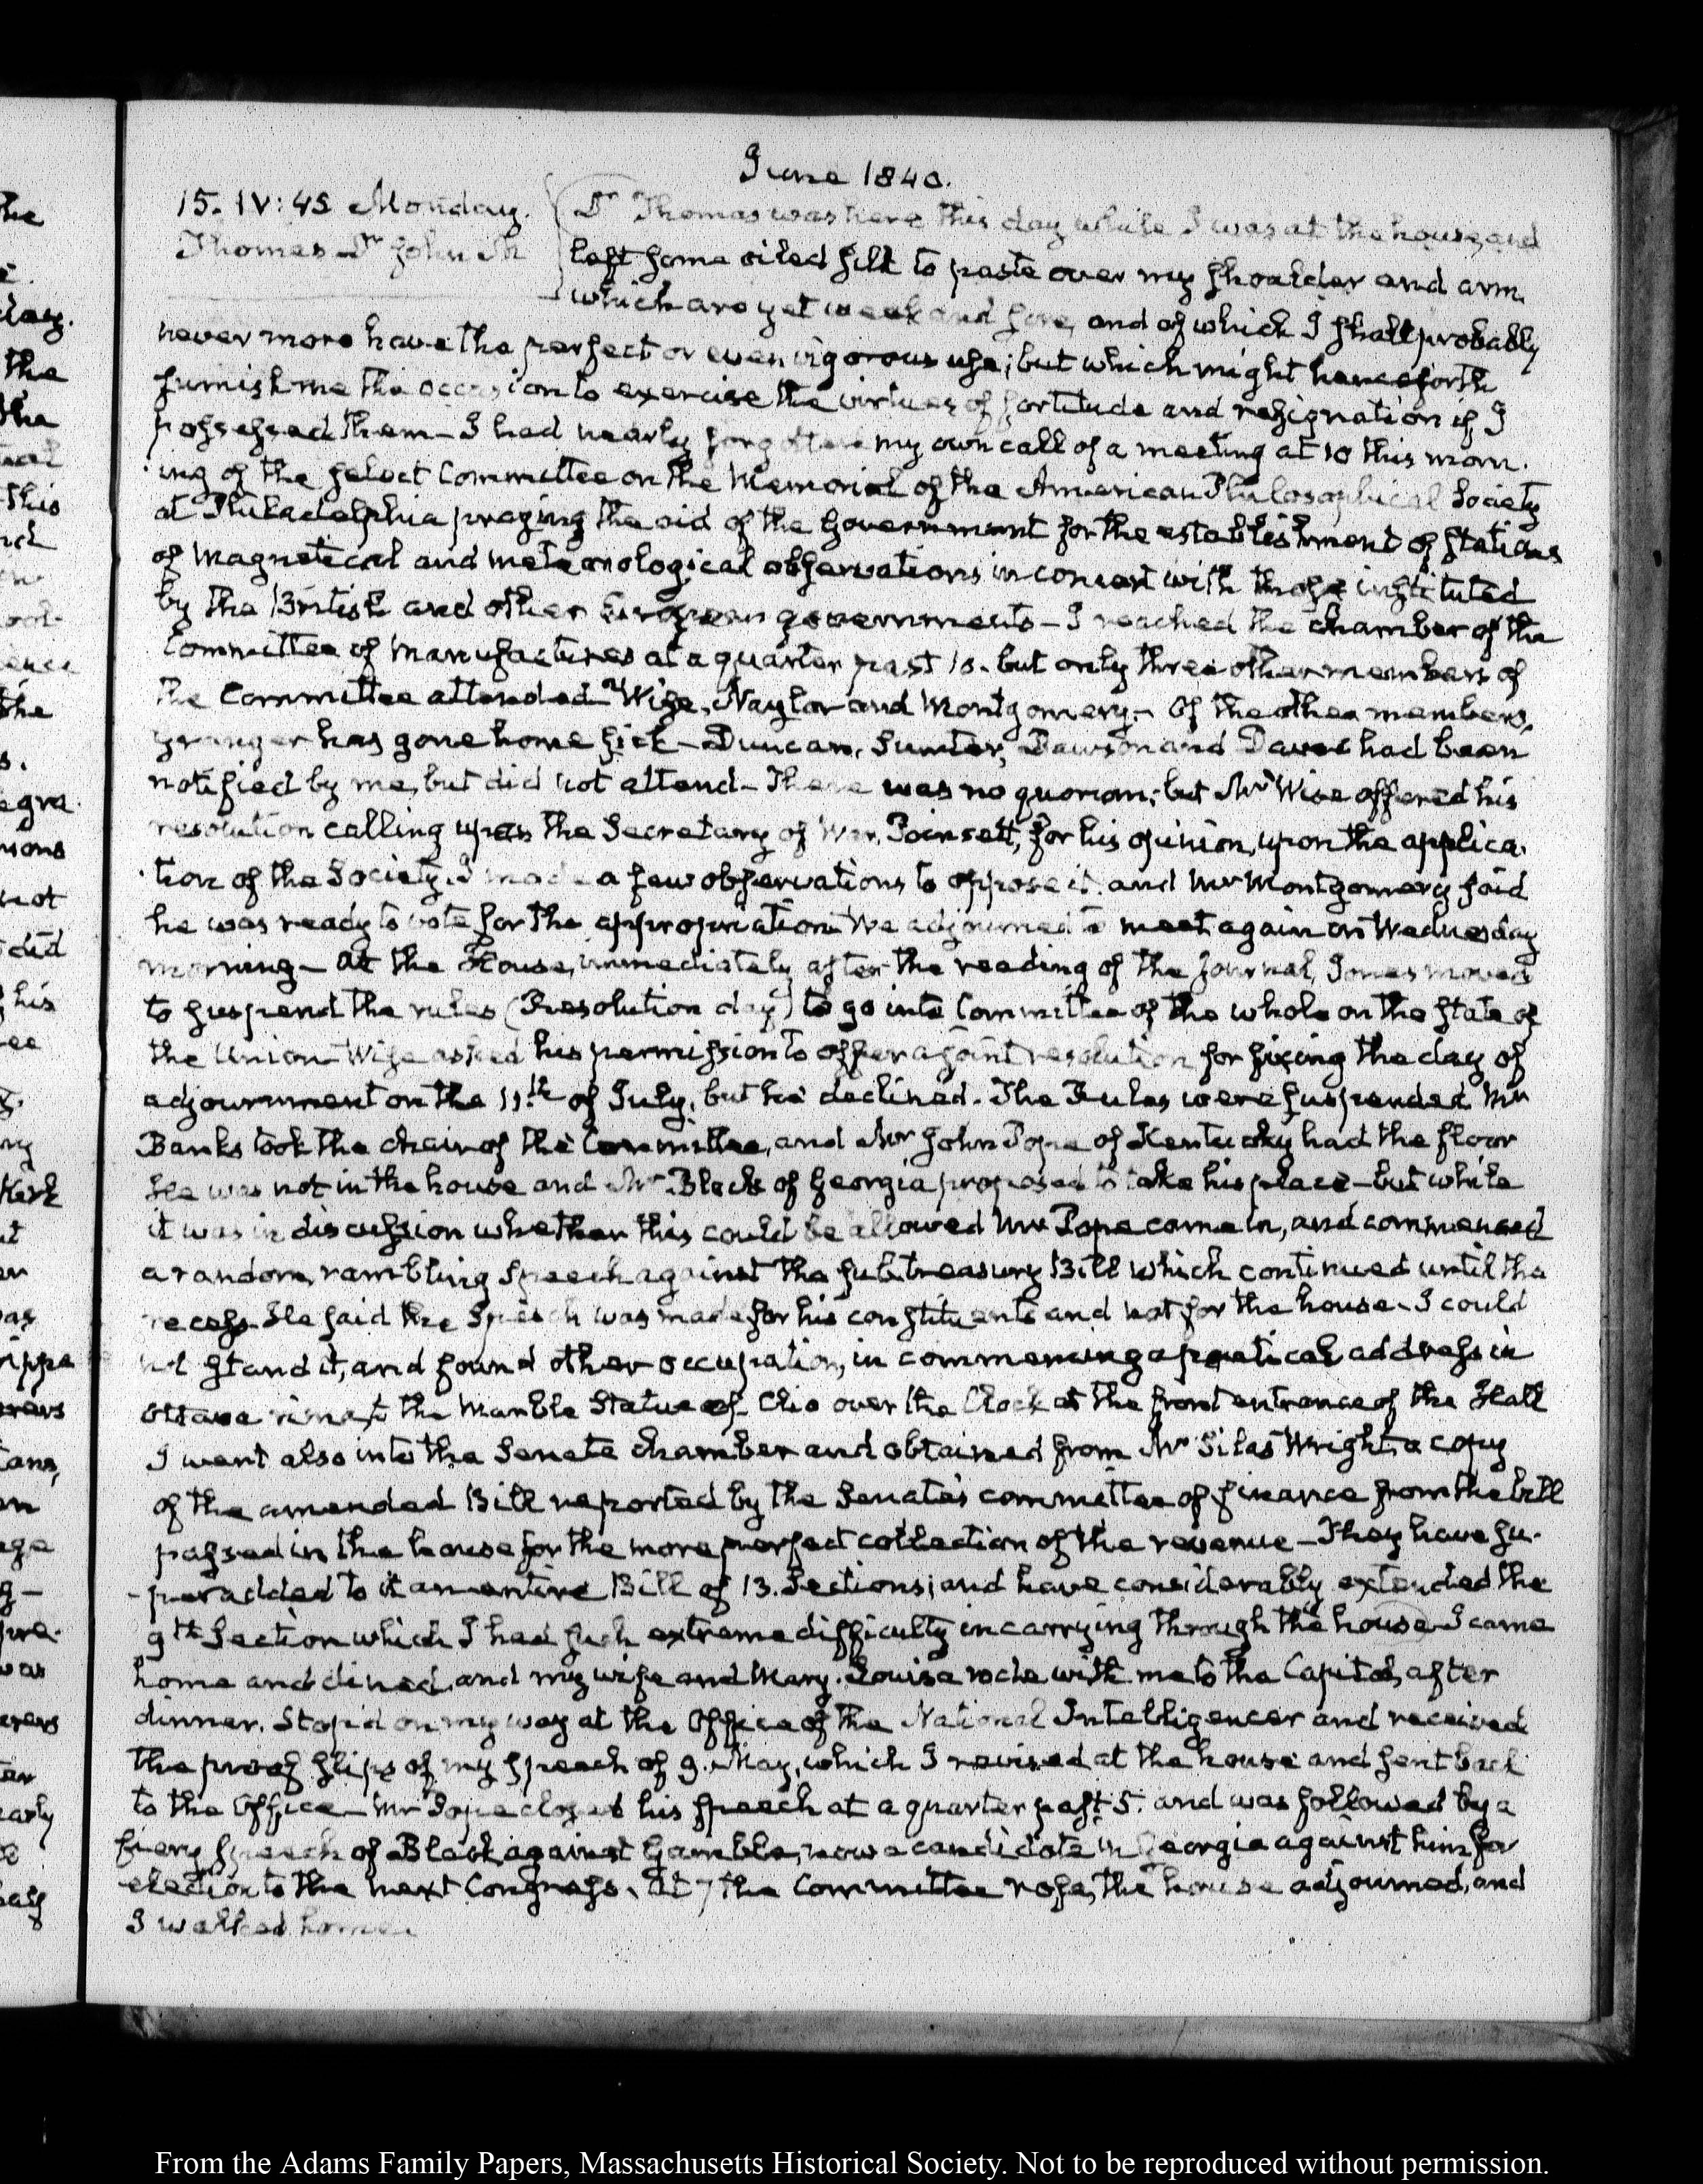 June 1840.
15. IV:45 Monday.
Thomas Dr John M
Dr Thomas was here this day while I was at the house, and
left some oiled silk to paste over my shoulder and arm
which are yet weak and sore, and of which I shall probably
never more have the perfect or even vigorous use; but which might henceforth
furnish me the occasion to exercise the virtues of fortitude and resignation if I
possessed them— I had nearly forgotten my own call of a meeting at 10 this morn-
ing of the select Committee on the Memorial of the American Philosophical Society
at Philadelphia praying the aid of the Government for the establishment of stations
of magnetical and meteorological observations in concert with those instituted
by the British and other European governments— I reached the chamber of the
Committee of Manufactures at a quarter past 10. but only three other members of
the Committee attended— Wise, Naylor and Montgomery.— Of the other members,
Granger has gone home sick— Duncan, Sumter, Dawson and Davee had been
notified by me, but did not attend— There was no quorum; but Mr Wise offered his
resolution calling upon the Secretary of War, Poinsett, for his opinion, upon the applica-
tion of the Society. I made a few observations to oppose it. and Mr Montgomery said
he was ready to vote for the appropriation We adjourned to meet again on Wednesday
morning— At the House, immediately after the reading of the Journal, Jones moved
to suspend the rules (Resolution day) to go into Committee of the whole on the state of
the Union— Wise asked his permission to offer a joint resolution for fixing the day of
adjournment on the 11th of July, but he declined. The Rules were suspended Mr
Banks took the chair of the Committee, and Mr John Pope of Kentucky had the floor
He was not in the house and Mr Black of Georgia proposed to take his place— but while
it was in discussion whether this could be allowed Mr Pope came in, and commenced
a random, rambling speech against the subtreasury Bill which continued until the
recess. He said the Speech was made for his constituents and not for the house— I could
not stand it, and found other occupation, in commencing a poetical address in
ottava rima to the Marble Statue of Clio over the Clock at the front entrance of the Hall
I went also into the Senate chamber and obtained from Mr Silas Wright a copy
of the amended Bill reported by the Senate's committee of finance from the bill
passed in the house for the more perfect collection of the revenue— They have su-
-peradded to it an entire Bill of 13. Sections; and have considerably extended the
9th Section which I had such extreme difficulty in carrying through the house— I came
home and dined, and my wife and Mary-Louisa rode with me to the Capitol, after
dinner. Stop'd on my way at the Office of the National Intelligencer and received
the proof slips of my speech of 9. May, which I revised at the house and sent back
to the Office— Mr Pope closed his speech at a quarter past 5. and was followed by a
fiery speech of Black against Gamble, now a candidate in Georgia against him for
election to the next Congress. At 7 the Committee rose, the house adjourned, and
I walked home.
From the Adams Family Papers, Massachusetts Historical Society. Not to be reproduced without permission.